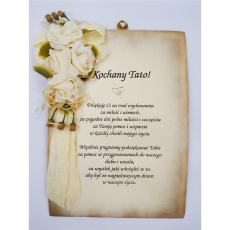 Kochany Tato!
Dziękuję Ci za trud wychowania
za miłość i uśmiech,
za pogodne dni pełne miłości i szczęścia
za Twoją pomoc i wsparcie
w każdej chwili mojego życia.
Wspólnie pragniemy podziękować Tobie
za pomoc w przygotowaniach do naszego
ślubu i wesela,
za wysiłek jaki włożyłeś w to,
aby był on najpiękniejszym dniem
w naszym życiu.